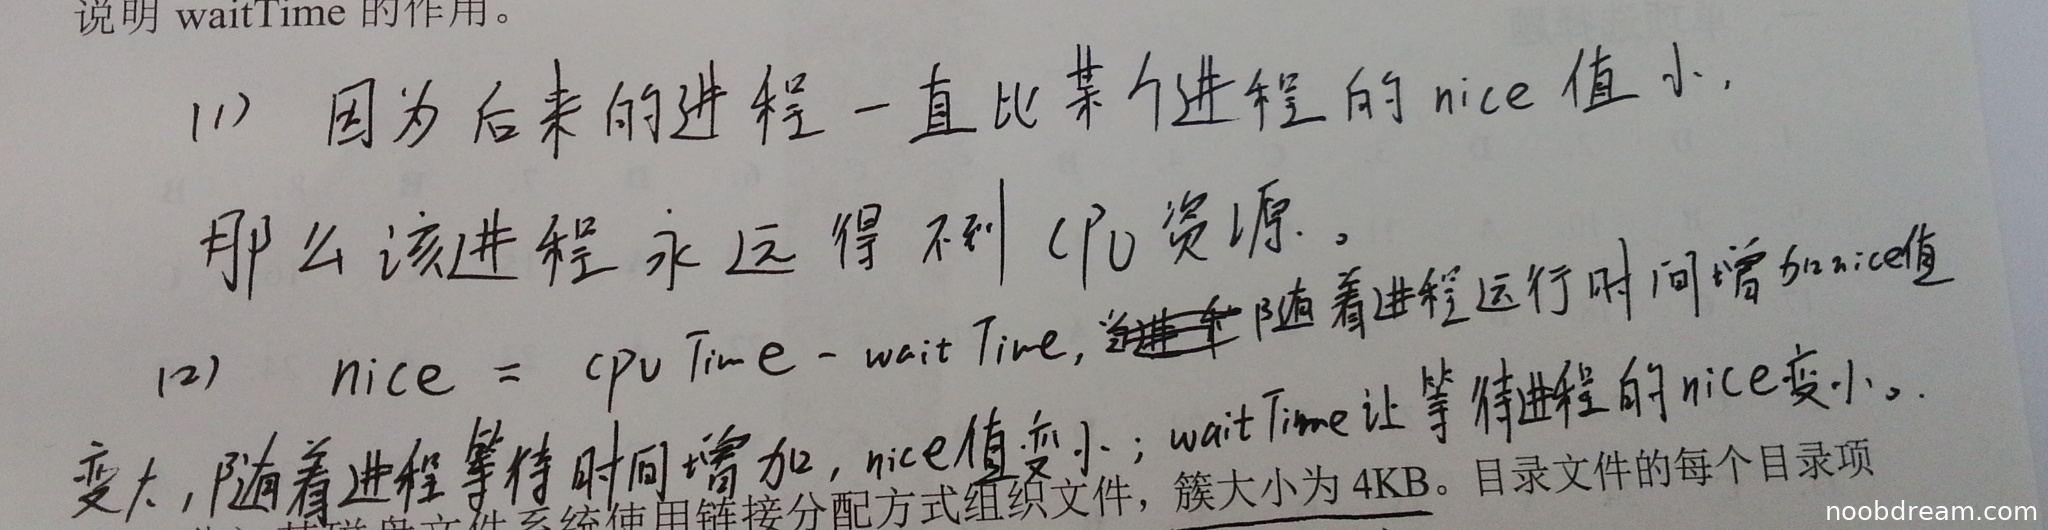 说明 waitTime 的作用。
(1) 因为后来的进程一直比某个进程的nice值小,
那么该进程永远得不到CPU资源.。
(2) nice = cpuTime - waitTime, 随着进程运行时间增加nice值
变大,随着进程等待时间增加,nice值变小;waitTime让等待进程的nice变小。.
某磁盘文件系统使用链接分配方式组织文件，簇大小为 4KB。目录文件的每个目录项
noobdream.com